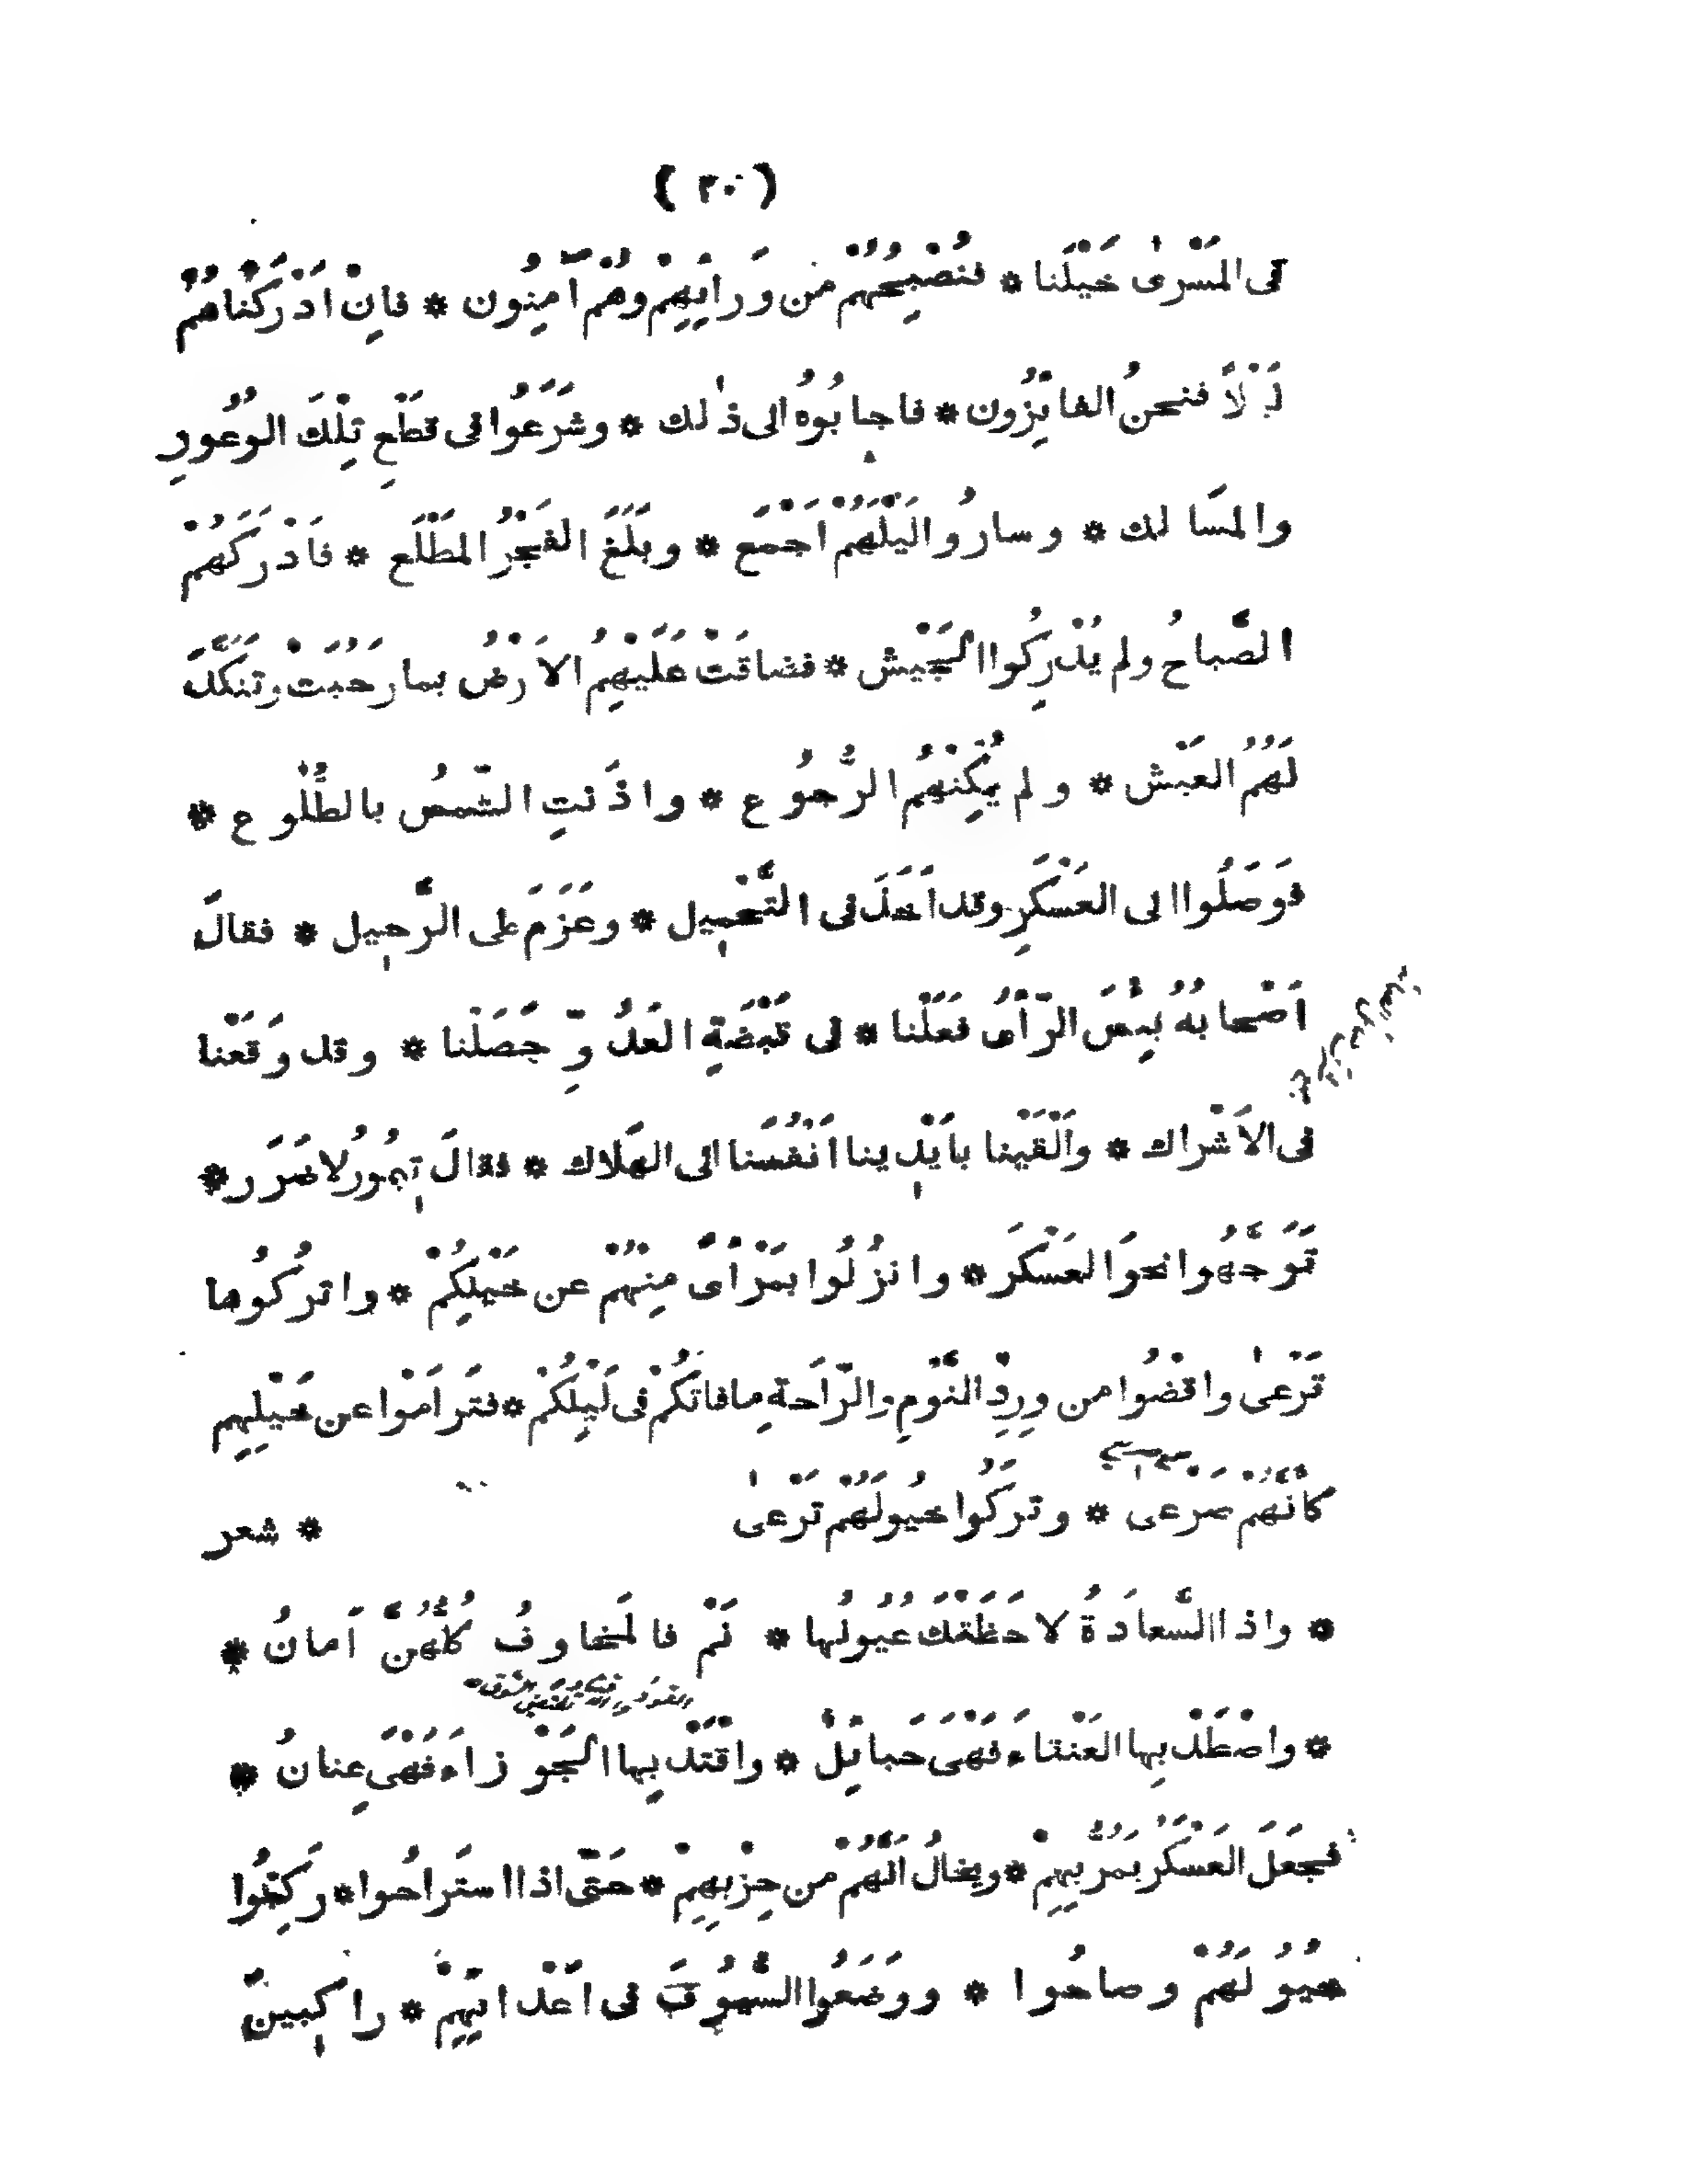 ( ٢٠ )
فى المَسْرىٰ خَيْلَنا * فنُصْبِحُهُمْ من وَرائِهِمْ وهُمْ آمِنُون * فاِنْ اَدْرَكْناهُمْ
لَيْلاً فنحنُ الفائِزُون * فاجابُوهُ الى ذٰلك * وشَرَعُوا فى قَطْعِ تِلْكَ الوُعُورِ
والمَسَالك * وسارُوا لَيْلَهُمْ اَجْمَع * وبَلَغَ الفَجْرُ المَطْلَع * فاَدْرَكَهُمْ
الصَّباحُ ولم يُدْرِكُوا الجَيْش * فضاقَتْ عَلَيْهِمُ الاَرْضُ بما رَحُبَتْ وتَنَكَّدَ
لَهُمُ العَيْش * ولم يُمْكِنْهُمُ الرُّجُوع * واذَنتِ الشّمسُ بالطُّلُوع *
فَوَصَلُوا الى العَسْكَرِ وقد اَخَذَ فى التَّحْمِيل * وعَزَمَ على الرَّحِيل * فقالَ
اَصْحابُهُ بِئْسَ الرّأىُ فَعَلْنا * فى قَبْضَةِ العَدُوِّ حَصَلْنا * وقد وَقَعْنا
فى الاَشْراك * واَلْقَيْنا باَيْدِينا اَنْفُسَنا الى الهَلاك * فقالَ تِيمُورُ لا ضَرَر *
تَوَجَّهُوا نحوَ العَسْكَر * وانزُلُوا بمَرْأىً مِنْهُمْ عن خَيْلِكُمْ * واتركُوها
تَرْعىٰ واقْضُوا من وِرْدِ النَّوْمِ والرّاحَةِ ما فاتَكُمْ فى لَيْلِكُمْ * فتَرامَوْا عن خَيْلِهِم
كانَّهُمْ صَرْعى * وتركُوا خُيُولَهُمْ تَرْعىٰ * شعر
* واذا السَّعادَةُ لاحَظَتْكَ عُيُونُها * نَمْ فالمَخاوِفُ كُلُّهُنَّ اَمانُ *
* واصْطَدْ بِها العَنْقاءَ فَهْىَ حَبائِلٌ * واقْتَدْ بِها الجَوْزاءَ فَهْىَ عِنانُ *
فجَعَلَ العَسْكَرُ يَمُرُّ بِهِمْ * ويخالُ اَنَّهُمْ من حِزْبِهِمْ * حَتّى اذا استَراحُوا * رَكِبُوا
خُيُولَهُمْ وصاحُوا * ووَضَعُوا السُّيُوفَ فى اَعْدائِهِمْ * راكِبينَ